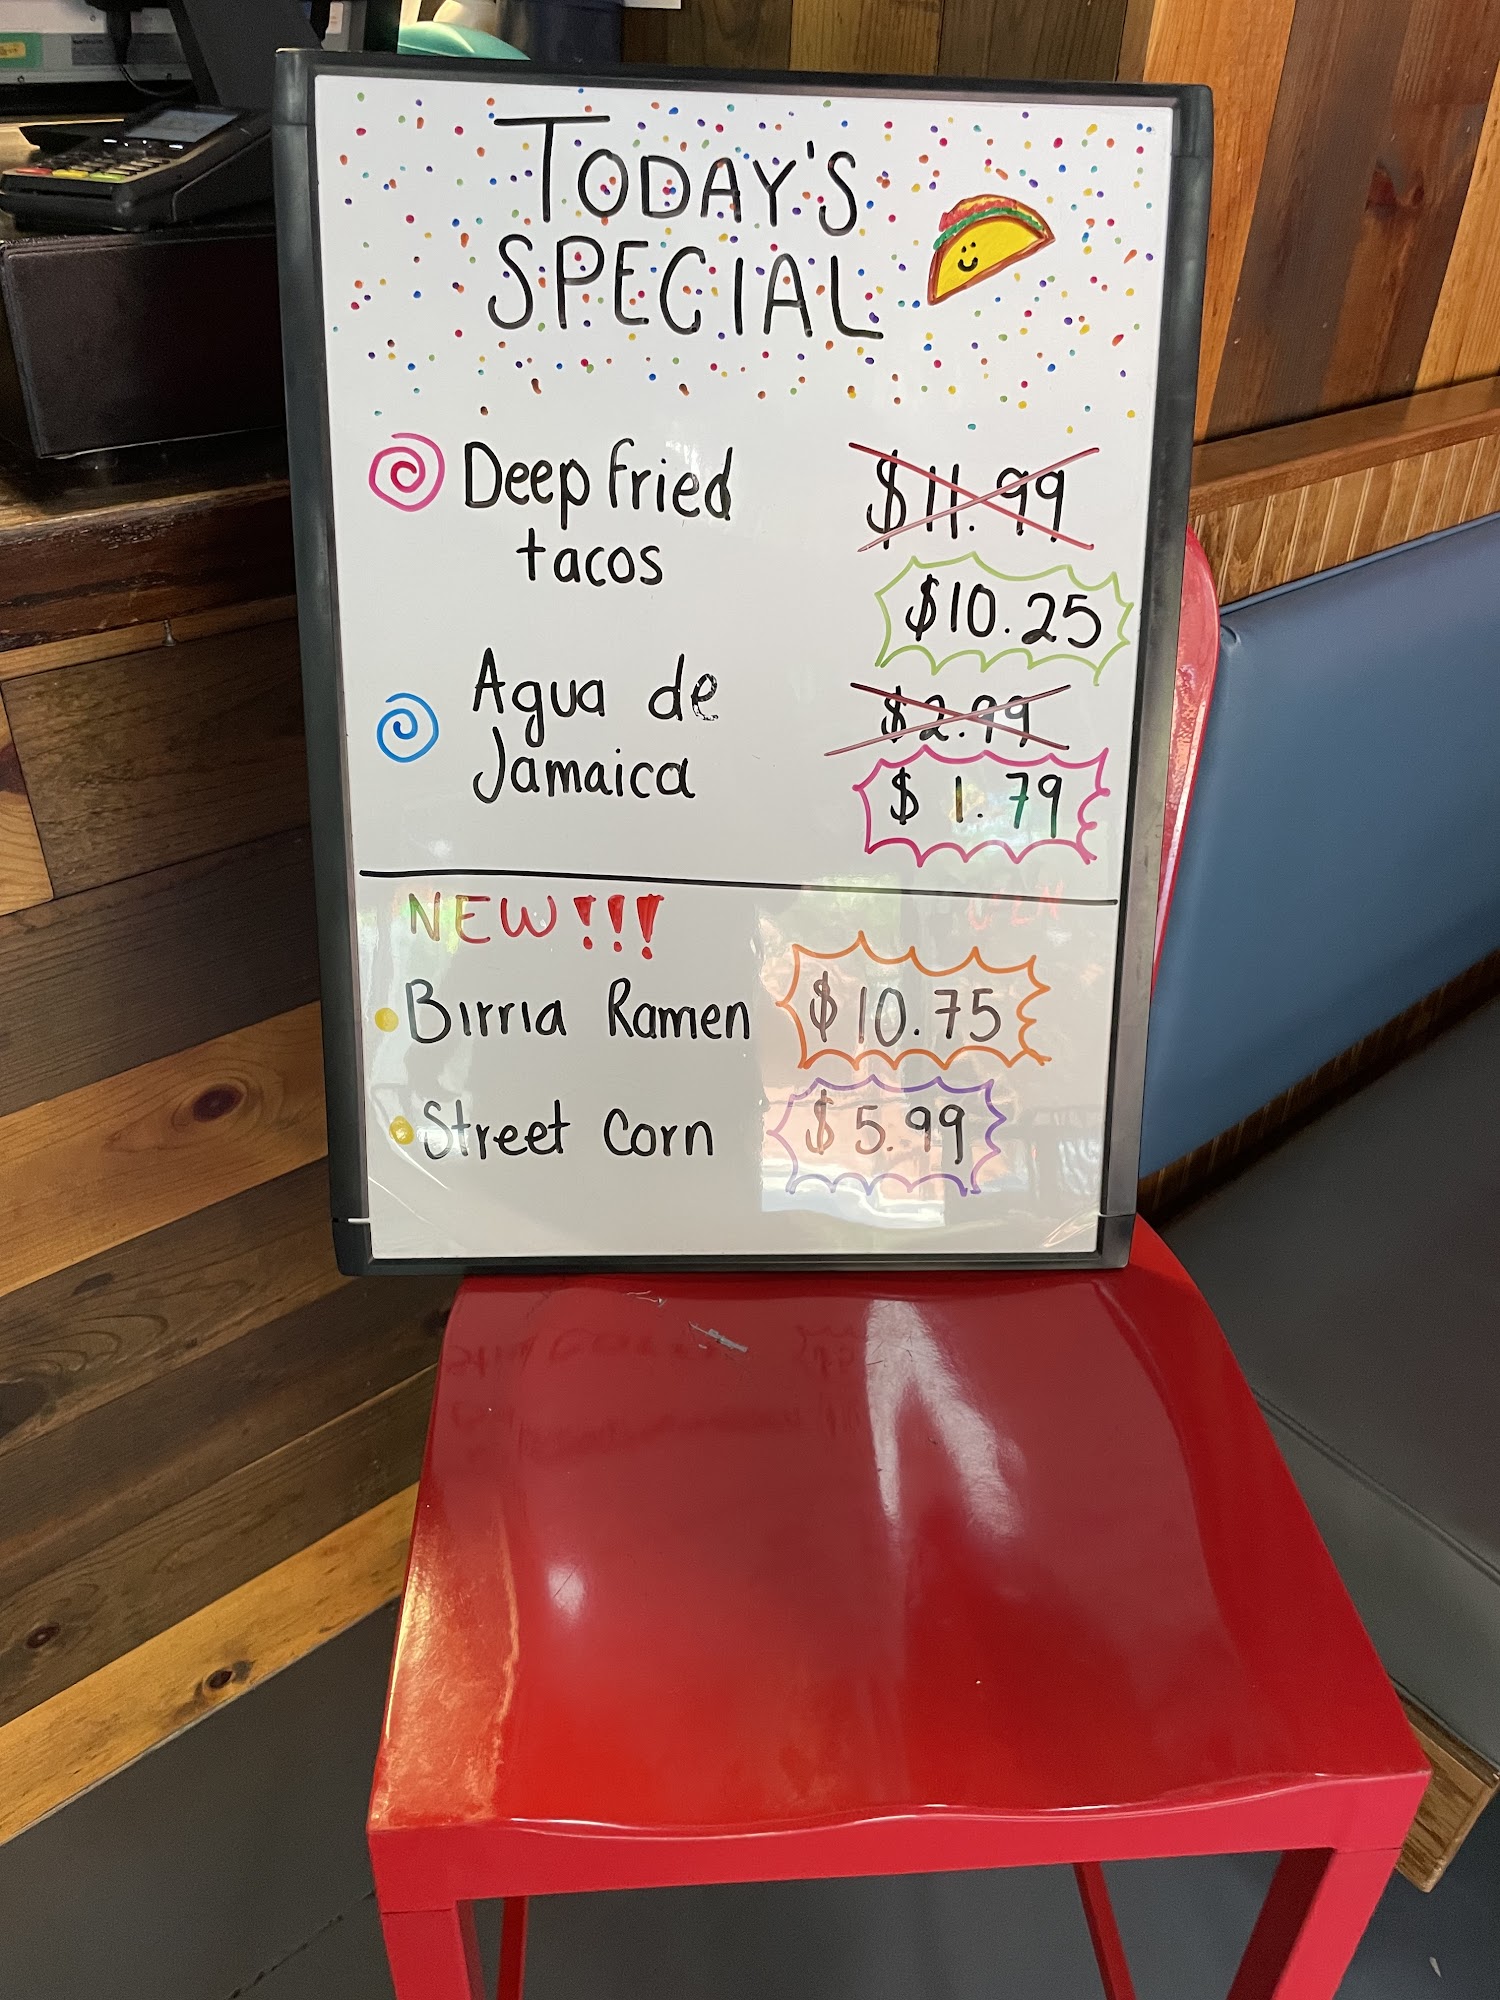 TODAY'S
SPECIAL
Deep fried $11.99
tacos
$10.25
Agua de $2.99
Jamaica $1.79
NEW!!!
Birria Ramen $10.75
Street Corn $5.99